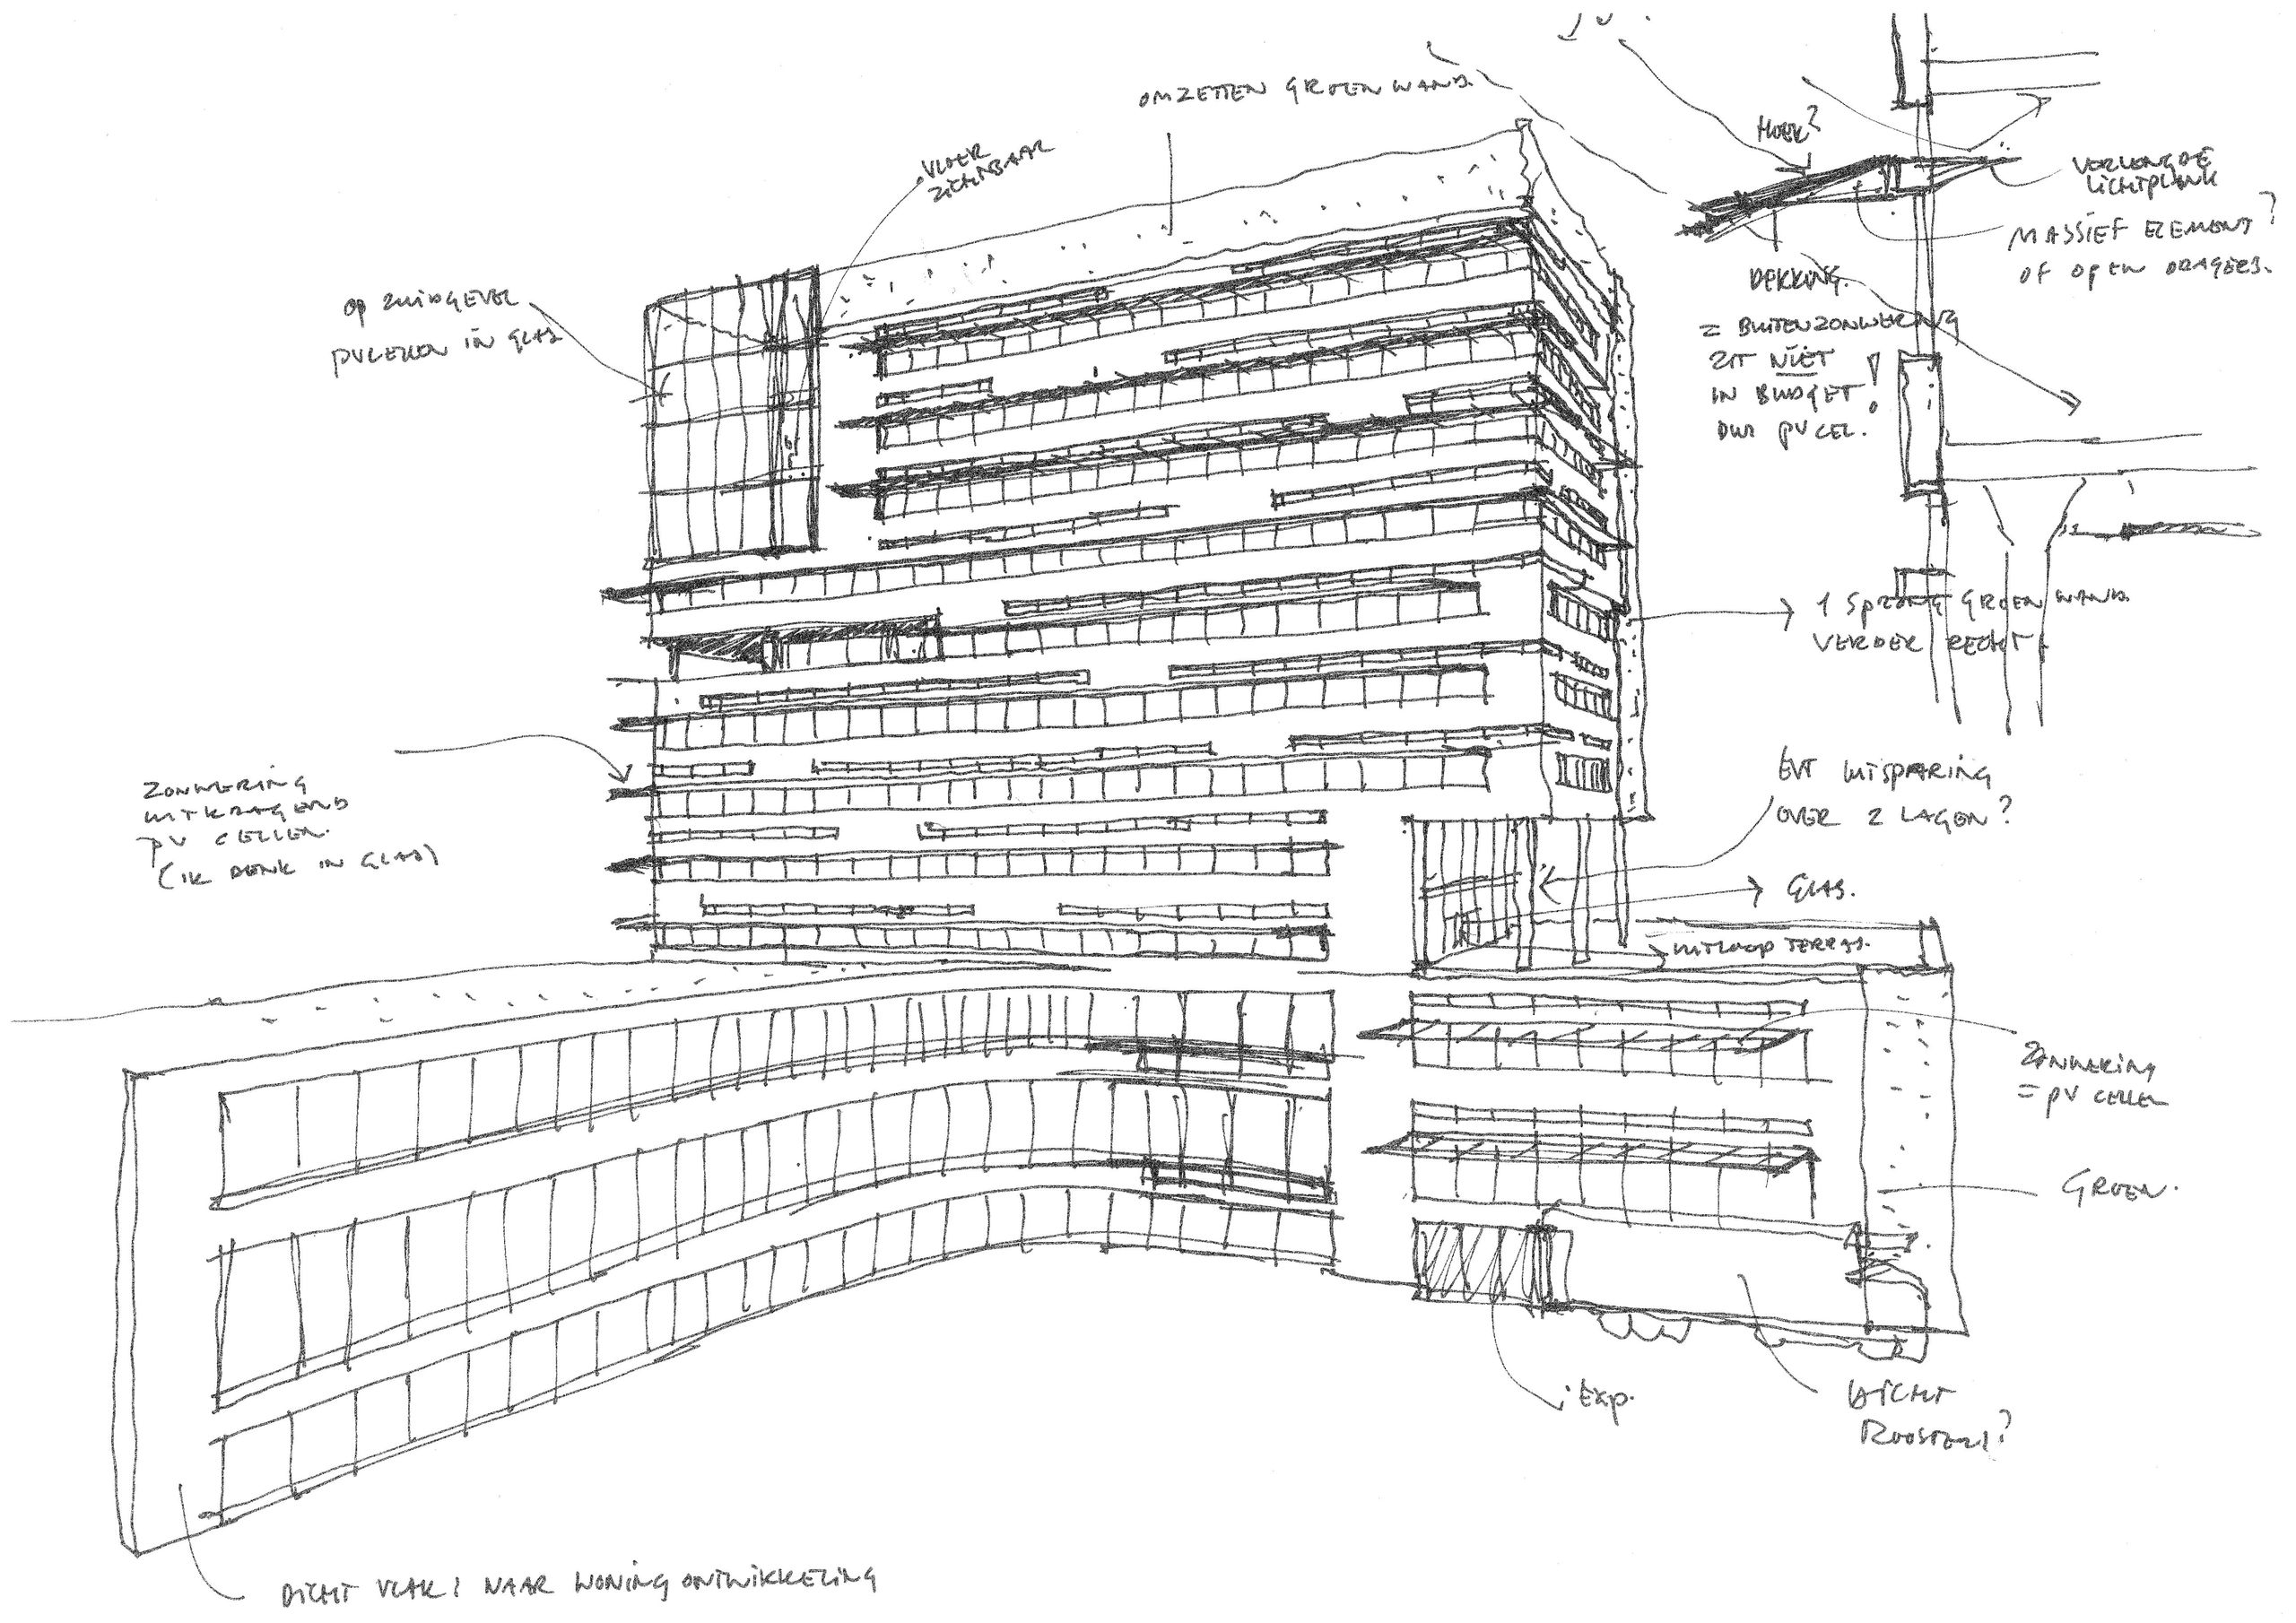 OMZETTEN GROENWAND.
VLOER
ZICHTBAAR
HOEK?
VERLENGDE
LICHTPLANK
MASSIEF ELEMENT?
OF OPEN DRAGERS.
OP ZUIDGEVEL
PVCELLEN IN GLAS
DEKKING.
= BUITENZONWERING
ZIT NIET
IN BUDGET!
DUS PVCEL.
1 SPRONG GROENWAND
VERDER RECHT
ZONWERING
UITKRAGEND
PV CELLEN.
(IK DENK IN GLAS)
EVT UITSPARING
OVER 2 LAGEN?
GLAS.
UITLOOP TERRAS.
ZONWERING
= PV CELLEN
GROEN.
EXP.
DICHT
ROOSTERS?
DICHT VLAK! NAAR WONINGONTWIKKELING